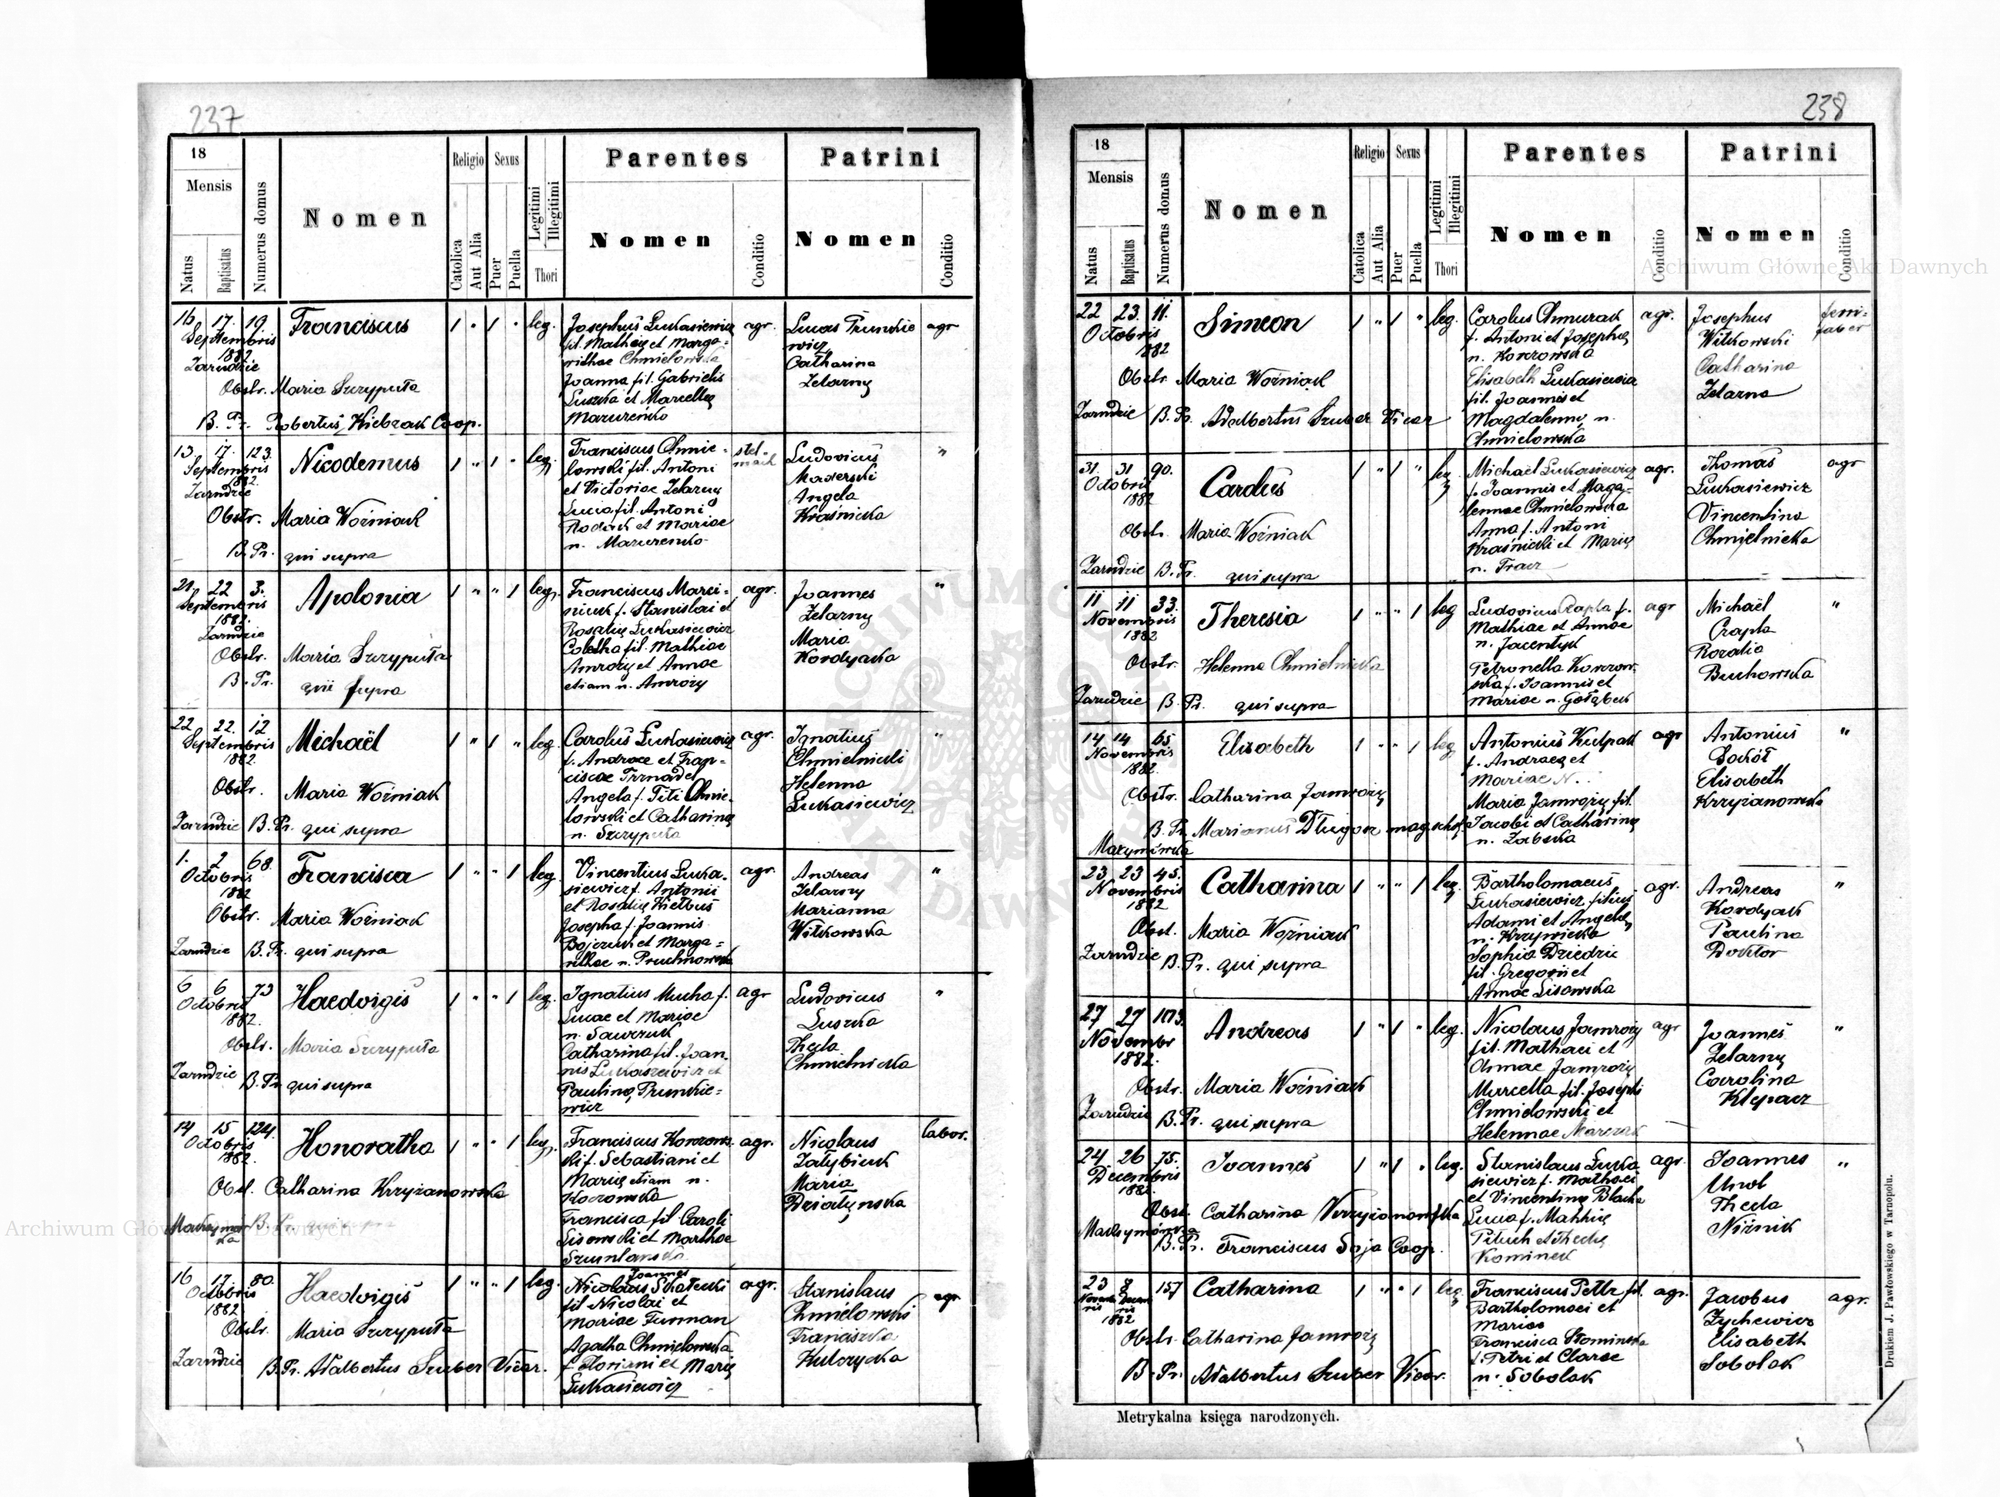 237
18
Mensis
Natus
Baptisatus
Numerus domus
Nomen
Religio
Catolica
Aut Alia
Sexus
Puer
Puella
Legitimi
Illegitimi
Thori
Parentes
Nomen
Conditio
Patrini
Nomen
Conditio
16 17. 19.
Septembris
1882
Zarudzie
Franciscus
1 " 1 "
leg.
Josephus Łukasiewicz
fil. Mathiae et Marga-
rithae Chmielowska
Joanna fil. Gabrielis
Luszka et Marcellae
Mazureńko
agr.
Lucas
Catharina
Żelazny
agr
Obstr. Maria Szrypuła
B. Pr. Robertus Kiebzak Coop.
13. 17. 123.
Septembris
1882.
Zarudzie
Nicodemus
1 " 1 "
leg.
Franciscus Chmie-
lowski fil. Antoni
et Victoriae Żelazny
Lucia fil. Antoni
et Mariae
n. Mazurenko
stel-
mach
Ludovicus
Maderski
Angela
Kraśnicka
"
Obstr. Maria Woźniak
B. Pr. qui supra
21. 22 3.
Septembris
1882.
Zarudzie
Apolonia
1 " " 1
leg.
Franciscus Marci-
niuk f. Stanislai et
Rosaliae Łukasiewicz
Coletha fil. Mathiae
Amroży et Annae
etiam n. Amroży
agr.
Joannes
Żelazny
Maria
Kordyacka
"
Obstr. Maria Szrypuła
B. Pr. qui supra
22 22. 12
Septembris
1882.
Michaël
1 " 1 "
leg.
Carolus Łukasiewicz
f. Andreae et Fran-
ciscae Trznadel
Angela f. Titi Chmie-
lowski et Catharinae
n. Szrypuła
agr.
Ignatius
Chmielnicki
Helenna
Łukasiewicz
"
Obstr. Maria Woźniak
Zarudzie B. Pr. qui supra
1. 2 68.
Octobris
1882
Francisca
1 " " 1
leg.
Vincentius Łuka-
siewicz f. Antonii
et Rosaliae Kiełbus
Josepha f. Joannis
Bojczuk et Marga-
rithae n. Pruchnowska
agr.
Andreas
Żelazny
Marianna
Witkowska
"
Obstr. Maria Woźniak
Zarudzie B. Pr. qui supra
6 6 73
Octobris
1882.
Haedvigis
1 " " 1
leg.
Ignatius Mucha f.
Lucae et Mariae
n. Sawczuk
Catharina fil. Joan-
nis Łukasiewicz et
Paulinae
agr
Ludovicus
Luszka
Thecla
Chmielnicka
"
Obstr. Maria Szrypuła
Zarudzie B. Pr. qui supra
14 15 124.
Octobris
1882.
Honoratha
1 " " 1
leg.
Franciscus Korzows-
ki f. Sebastiani et
Mariae etiam n.
Korzowska
Francisca fil. Caroli
Lisowski et Marthae
agr.
Nicolaus
Załybiuk
Maria
Działyńska
labor.
Obst. Catharina Krzyżanowska
Maksymów-
ka B. Pr. qui supra
16 17. 80.
Octobris
1882
Haedvigis
1 " " 1
leg.
Joannes
Nicolaus
fil. Nicolai et
Mariae Furman
Agatha Chmielowska
f. Floriani et Mariae
Łukasiewicz
agr.
Stanislaus
Chmielowski
Franciszka
Kulczycka
agr.
Obstr. Maria Szrypuła
Zarudzie B. Pr. Adalbertus Szuber Vicar.
238
18
Mensis
Natus
Baptisatus
Numerus domus
Nomen
Religio
Catolica
Aut Alia
Sexus
Puer
Puella
Legitimi
Illegitimi
Thori
Parentes
Nomen
Conditio
Patrini
Nomen
Conditio
22 23. 11.
Octobris
1882
Simeon
1 " 1 "
leg.
Carolus Chmurak
f. Antoni et Josephae
n. Korzowska
Elisabeth Łukasiewicz
fil. Joannis et
Magdalenna n.
Chmielowska
agr.
Josephus
Witkowski
Catharina
Żelazna
ferri-
faber
Obstr. Maria Woźniak
Zarudzie B. Pr. Adalbertus Szuber Vicar
31. 31 90.
Octobris
1882
Carolus
1 " 1 "
leg
Michaël Łukasiewicz
f. Joannis et Magda-
lennae Chmielowska
Anna f. Antoni
Kraśnicki et Mariae
n. Tracz
agr.
Thomas
Łukasiewicz
Vincentina
Chmielnicka
agr
Obstr. Maria Woźniak
Zarudzie B. Pr. qui supra
11 11 33.
Novembris
1882
Theresia
1 " " 1
leg
Ludovicus Czapla f.
Mathiae et Annae
n. Jacentyk
Petronella Korzow-
ska f. Joannis et
Mariae n. Gołąbek
agr
Michaël
Czapla
Rozalia
Buchowska
"
Obstr. Helenna Chmielnicka
Zarudzie B. Pr. qui supra
14 14 65.
Novembris
1882.
Elisabeth
1 " " 1
leg.
Antonius Kulpak
f. Andreae et
Mariae N.
Maria Jamroży fil.
Jacobi et Catharinae
n. Żabska
agr
Antonius
Sokół
Elisabeth
Krzyżanowska
"
Obstr. Catharina Jamroży
B. Pr. Marianus Długosz
23. 23 45.
Novembris
1882
Catharina
1 " " 1
leg.
Bartholomaeus
Łukasiewicz filius
Adami et Angelae
n. Krzywicka
Sophia Dziedzic
fil. Gregorii et
Annae Lisowska
agr.
Andreas
Kordyak
Paulina
Doktor
"
Obst. Maria Woźniak
Zarudzie B. Pr. qui supra
27 27 103.
Novembr
1882.
Andreas
1 " 1 "
leg.
Nicolaus Jamroży
fil. Mathaei et
Annae Jamroży
Marcella fil. Josephi
Chmielowski et
Helennae
agr
Joannes
Żelazny
Carolina
Klepacz
"
Obstr. Maria Woźniak
Zarudzie B. Pr. qui supra
24 26 75.
Decembris
1882.
Joannes
1 " 1 "
leg.
Stanislaus Łuka-
siewicz f. Mathaei
et Vincentina Blacha
Lucia f. Mathiae
et Theclae
Kominek
agr.
Joannes
Thecla
"
Obst. Catharina Krzyżanowska
Maksymówka
B. Pr. Franciscus Soja Coop.
23 8 157
1882
Catharina
1 " " 1
leg
Franciscus Petr fil.
Bartholomaei et
Mariae
Francisca Słomińska
f. Petri et Clarae
n. Sobolak
agr.
Jacobus
Zychewicz
Elisabeth
Sobolak
agr.
Obstr. Catharina Jamroży
B. Pr. Adalbertus Szuber Vicar.
Metrykalna księga narodzonych.
Drukiem J. Pawłowskiego w Tarnopolu.
Archiwum Główne Akt Dawnych
Archiwum Główne Akt Dawnych
ARCHIWUM GŁÓWNE AKT DAWNYCH